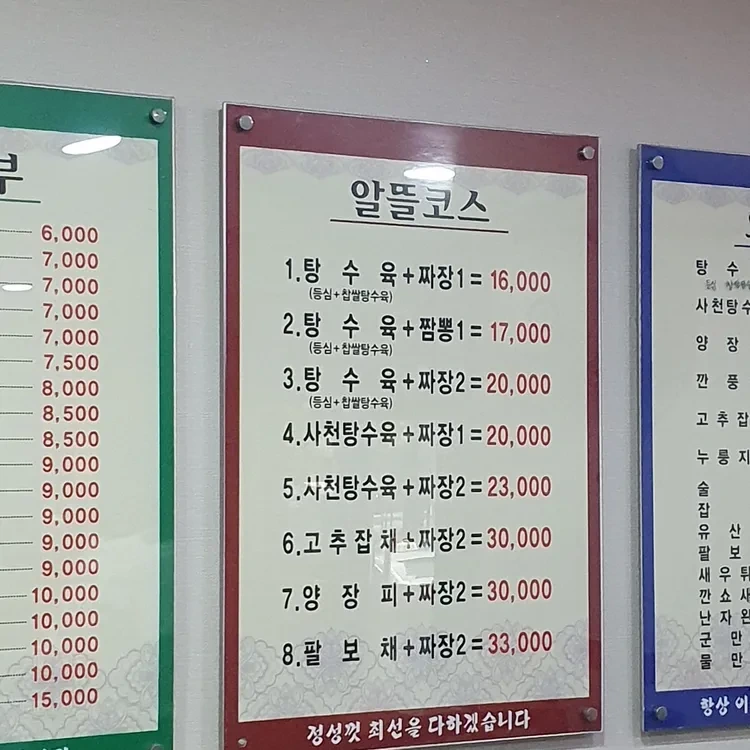 부
6,000
7,000
7,000
7,000
7,000
7,500
8,000
8,500
8,500
9,000
9,000
9,000
9,000
9,000
10,000
10,000
10,000
10,000
15,000
알뜰코스
1.탕 수 육+짜장1=16,000
(등심+찹쌀탕수육)
2.탕 수 육+짬뽕1=17,000
(등심+찹쌀탕수육)
3.탕 수 육+짜장2=20,000
(등심+찹쌀탕수육)
4.사천탕수육+짜장1=20,000
5.사천탕수육+짜장2=23,000
6.고추잡채+짜장2=30,000
7.양 장 피+짜장2=30,000
8.팔 보 채+짜장2=33,000
정성껏 최선을 다하겠습니다
탕 수
사천탕수
양 장
깐 풍
고추잡
누룽지
술
잡
유 산
팔 보
새우튀
깐쇼새
난자완
군 만
물 만
항상 이